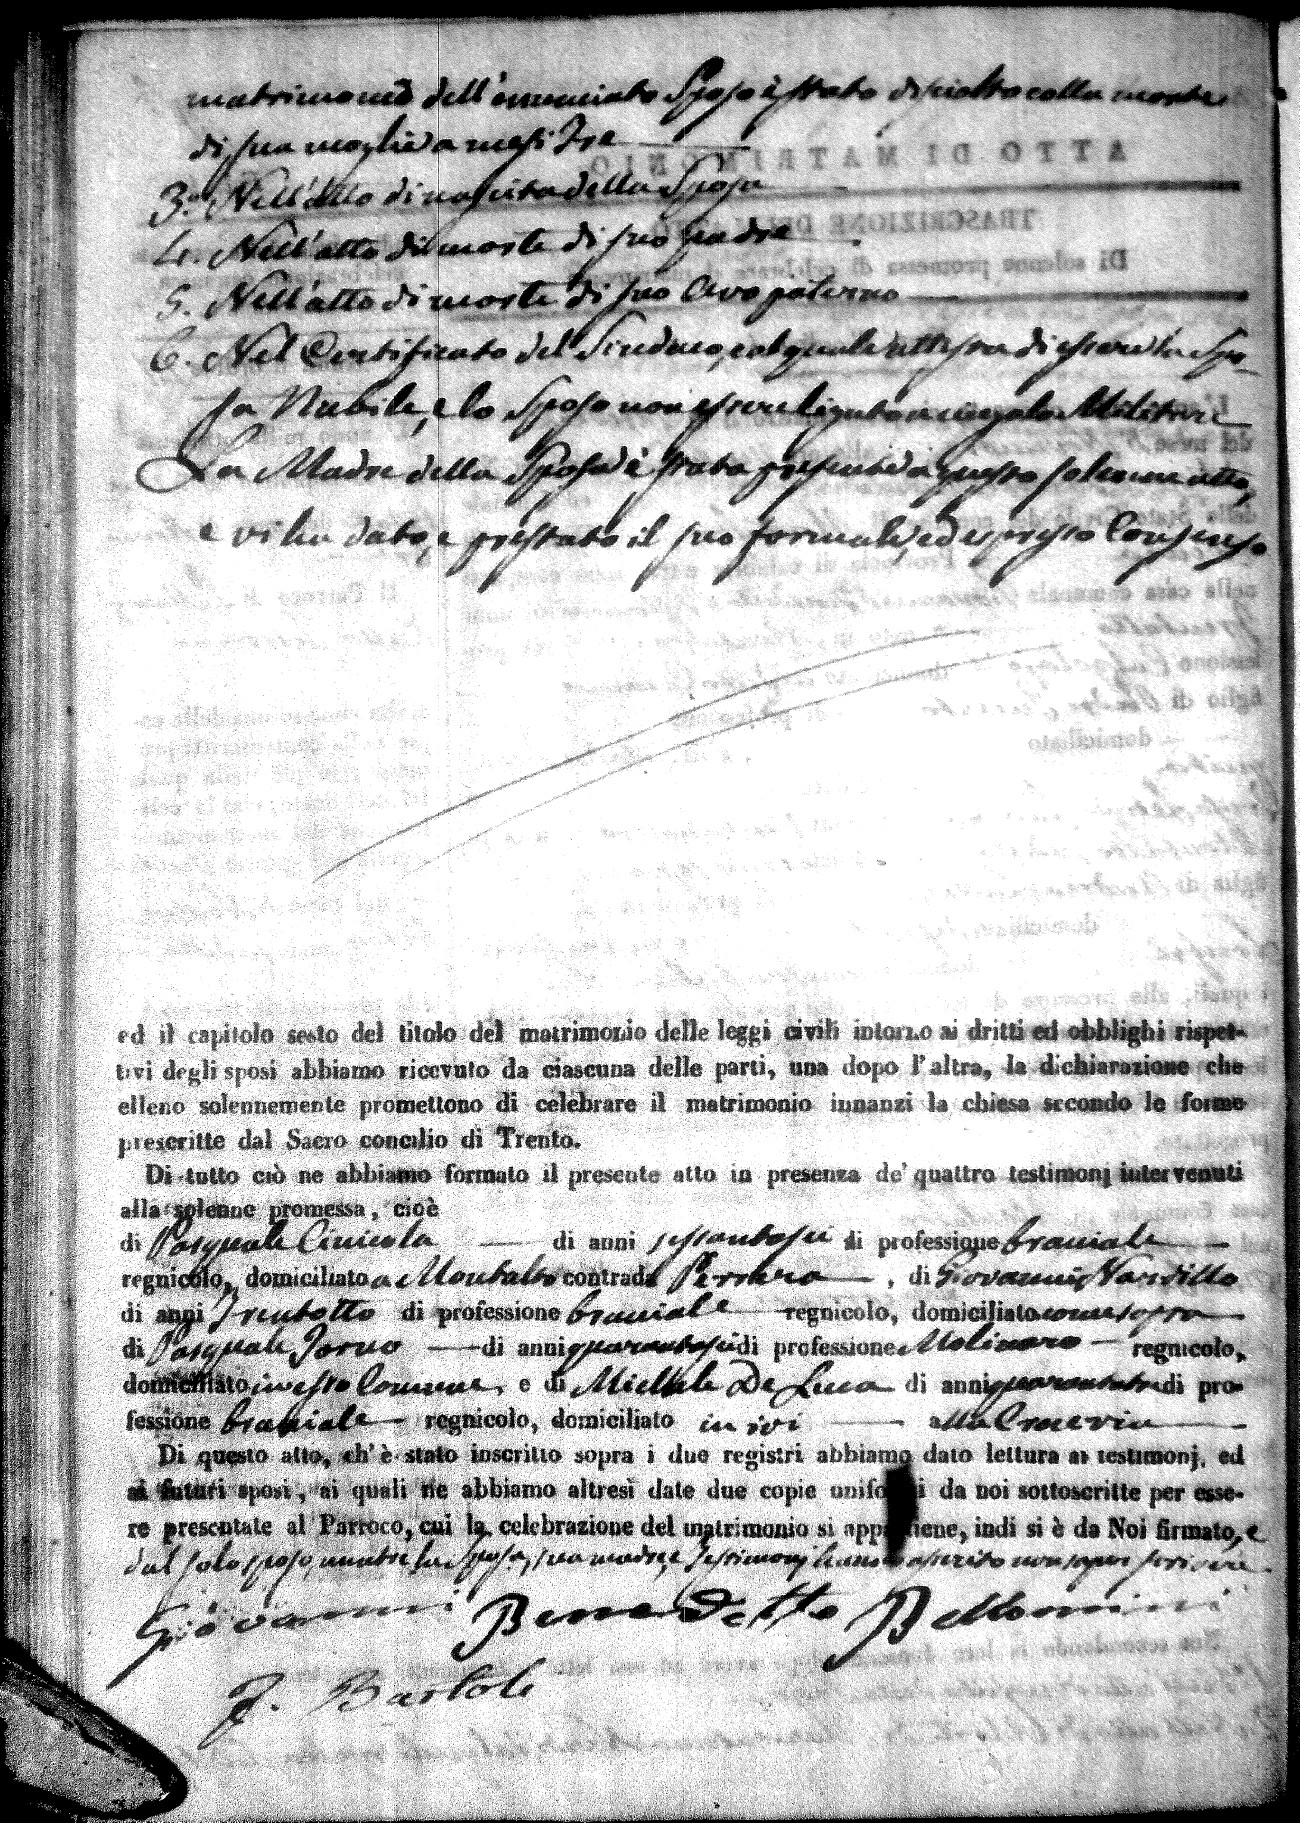 matrimonio dell'enunciato Sposo è stato disciolto colla morte
di sua moglie a mesi Tre
3.° Nell'atto di nascita della Sposa
4. Nell'atto di morte di suo padre
5. Nell'atto di morte di suo Avo paterno
6. Nel Certificato del Sindaco, col quale attesta di essere la Spo-
sa Nubile, e lo Sposo non essere ligato a Militare
La Madre della Sposa è stata presente a questo solenne atto,
e vi ha dato, e prestato il suo formale, ed espresso Consenso
ed il capitolo sesto del titolo del matrimonio delle leggi civili intorno ai dritti ed obblighi rispet-
tivi degli sposi abbiamo ricevuto da ciascuna delle parti, una dopo l'altra, la dichiarazione che
elleno solennemente promettono di celebrare il matrimonio innanzi la chiesa secondo le forme
prescritte dal Sacro concilio di Trento.
Di tutto ciò ne abbiamo formato il presente atto in presenza de' quattro testimonj intervenuti
alla solenne promessa, cioè
di Pasquale di anni sessantasei di professione braciale
regnicolo, domiciliato a Montalto contrada , di Giovanni
di anni Trentotto di professione braciale regnicolo, domiciliato come sopra
di Pasquale di anni quarantasei di professione Molinaro regnicolo,
domiciliato in esso Comune, e di Michele De Luca di anni di pro-
fessione braciale regnicolo, domiciliato in ivi alla
Di questo atto, ch'è stato inscritto sopra i due registri abbiamo dato lettura ai testimonj, ed
ai futuri sposi, ai quali ne abbiamo altresì date due copie uniformi da noi sottoscritte per esse-
re presentate al Parroco, cui la celebrazione del matrimonio si appartiene, indi si è da Noi firmato, e
dal solo sposo, mentre la Sposa, sua madre, e Testimonj hanno asserito non saper scrivere
Giovanni Benedetto Bellomini
F. Bartoli